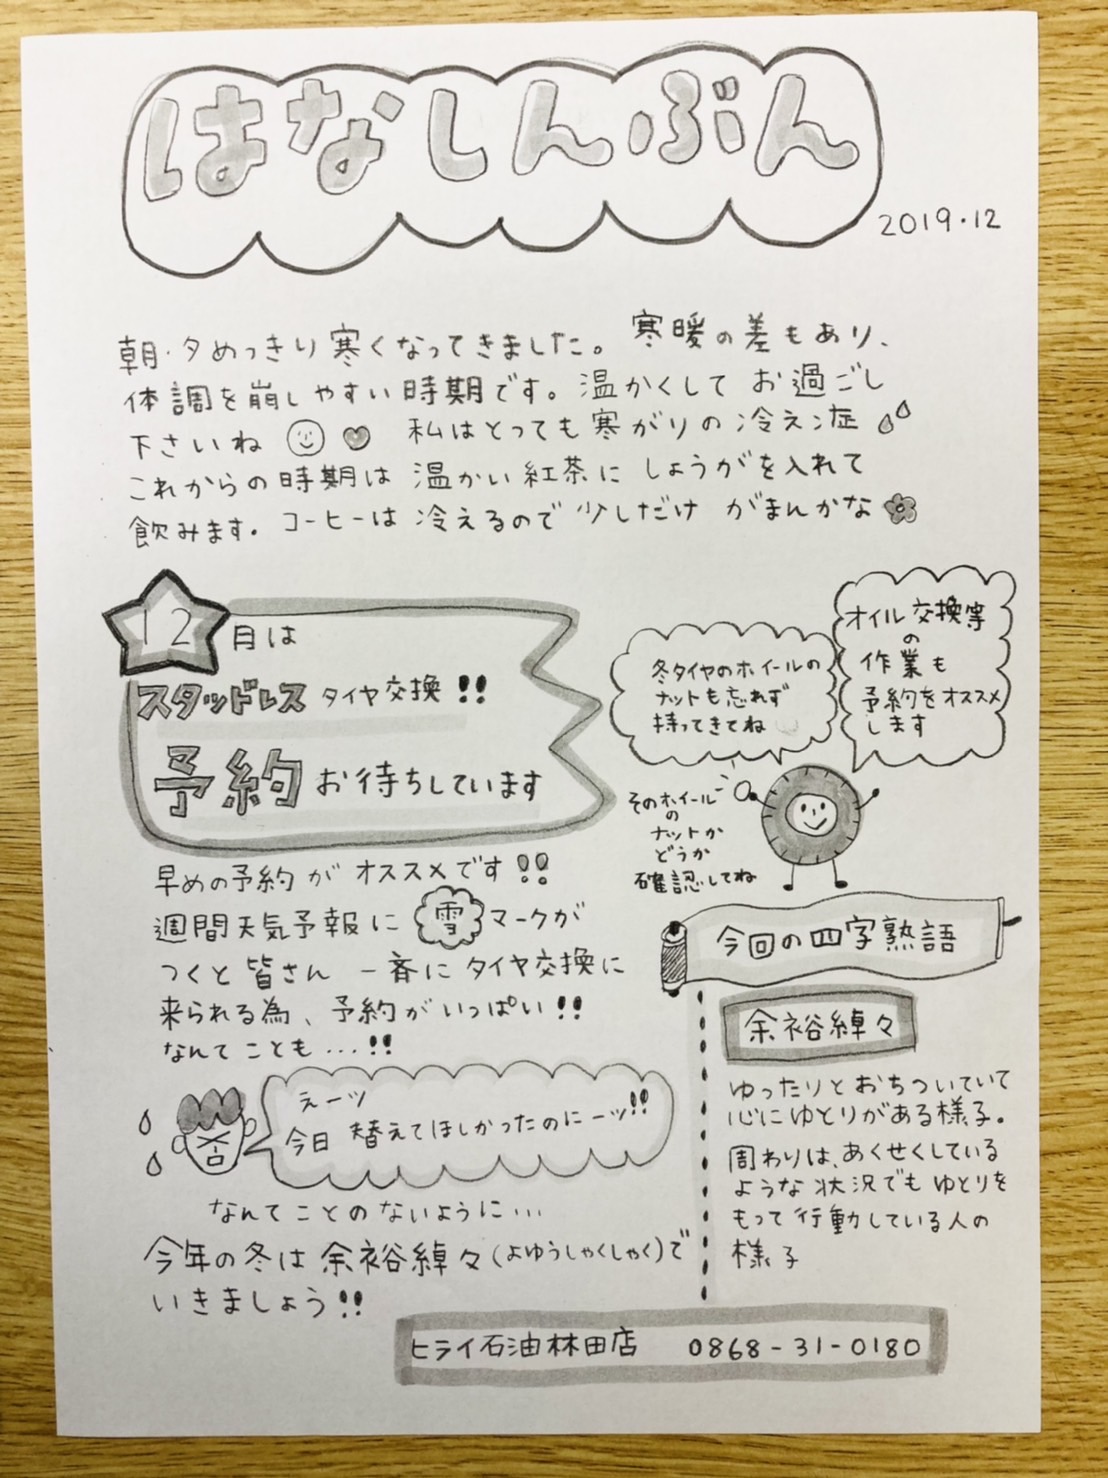 はなしんぶん
2019.12
朝・夕めっきり寒くなってきました。寒暖の差もあり、
体調を崩しやすい時期です。温かくして お過ごし
下さいね 私はとっても寒がりの冷え症
これからの時期は 温かい紅茶に しょうがを入れて
飲みます。コーヒーは 冷えるので 少しだけ がまんかな
12月は
スタッドレス タイヤ交換!!
予約 お待ちしています
冬タイヤのホイールの
ナットも忘れず
持ってきてね
オイル交換等
の
作業も
予約をオススメ
します
そのホイール
の
ナットか
どうか
確認してね
早めの予約が オススメです!!
週間天気予報に 雪 マークが
つくと 皆さん 一斉に タイヤ交換に
来られる為、予約がいっぱい!!
なんてことも…!!
えーッ
今日 替えてほしかったのにーッ!!
なんてことの ないように…
今年の冬は 余裕綽々(よゆうしゃくしゃく)で
いきましょう!!
今回の四字熟語
余裕綽々
ゆったりとおちついていて
心にゆとりがある様子。
周わりは、あくせくしている
ような 状況でも ゆとりを
もって 行動している人の
様子
ヒライ石油林田店 0868-31-0180